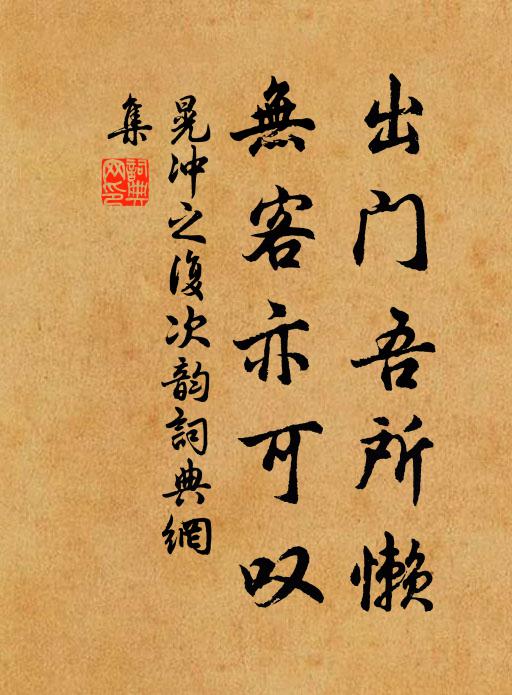 出门吾所懒
無客亦可叹
晁冲之復次韵詞典網
集
詞典
网印